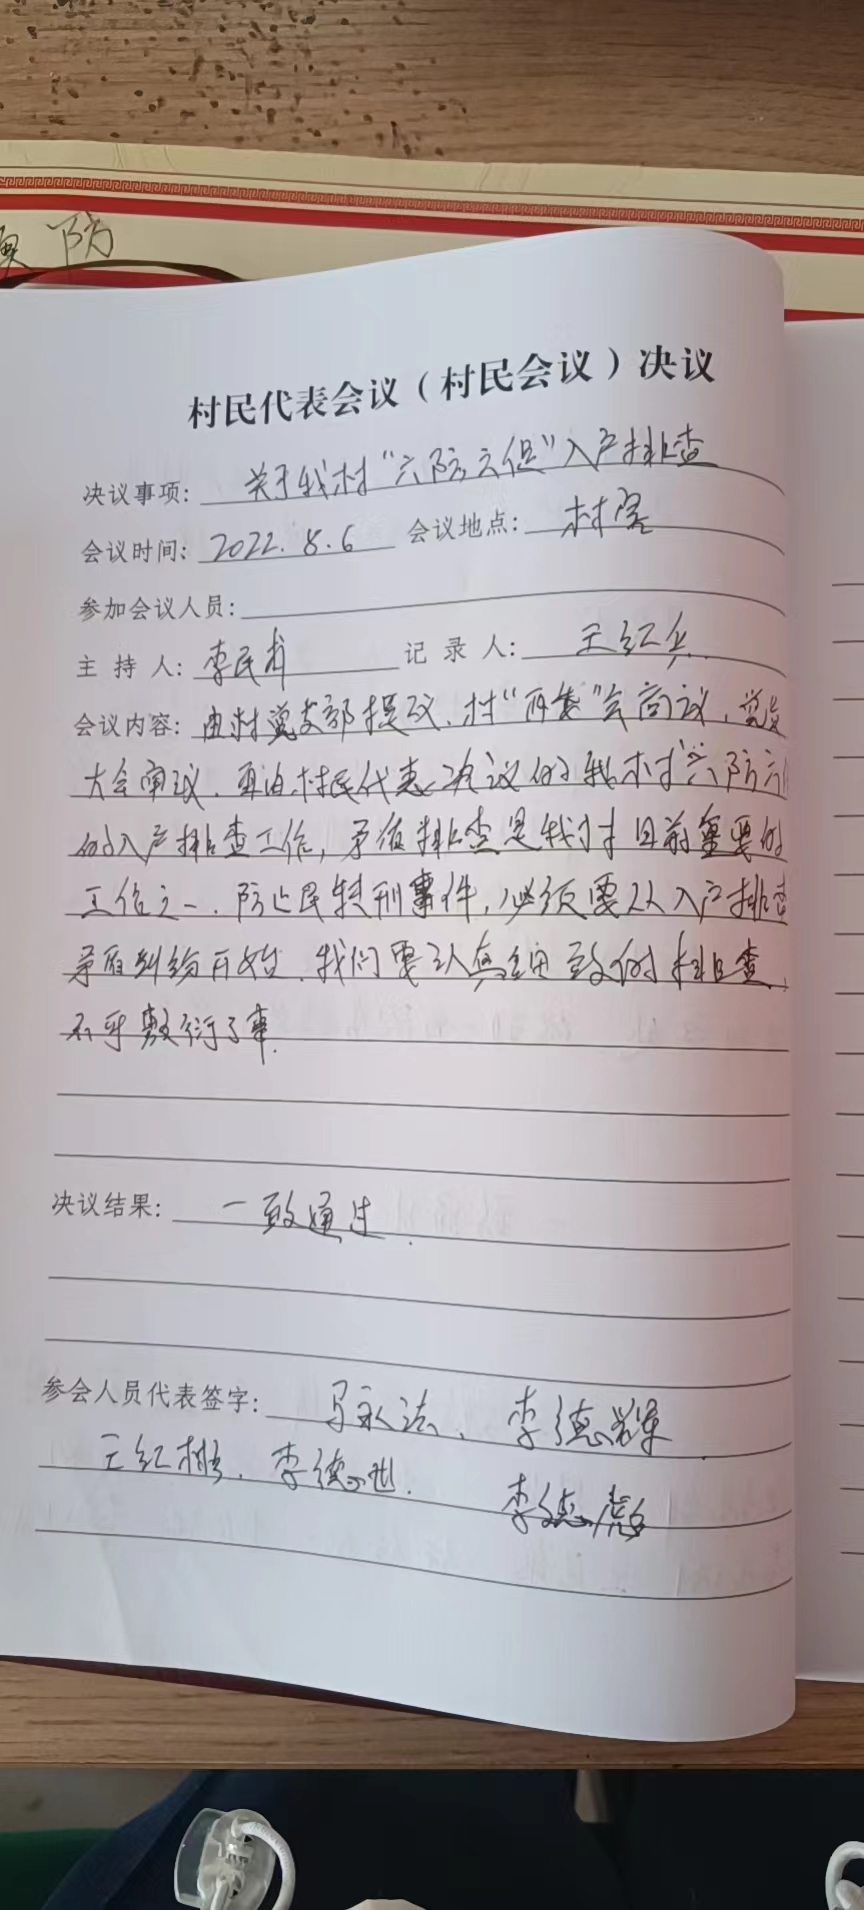 防
村民代表会议（村民会议）决议
决议事项：关于我村“六防六促”入户排查
会议时间：2022.8.6 会议地点：村室
参加会议人员：
主持人：李民甫 记录人：王红兵
会议内容：由村党支部提议、村“两委”会商议，党员
大会审议，再由村民代表决议的我村“六防六
的入户排查工作，矛盾排查是我村目前重要的
工作之一，防止民转刑事件，必须要从入户排查
矛盾纠纷开始，我们要认真细致的排查，
不乎敷衍了事.
决议结果：一致通过.
参会人员代表签字：马永法、李德
王红彬、李德世. 李德彪